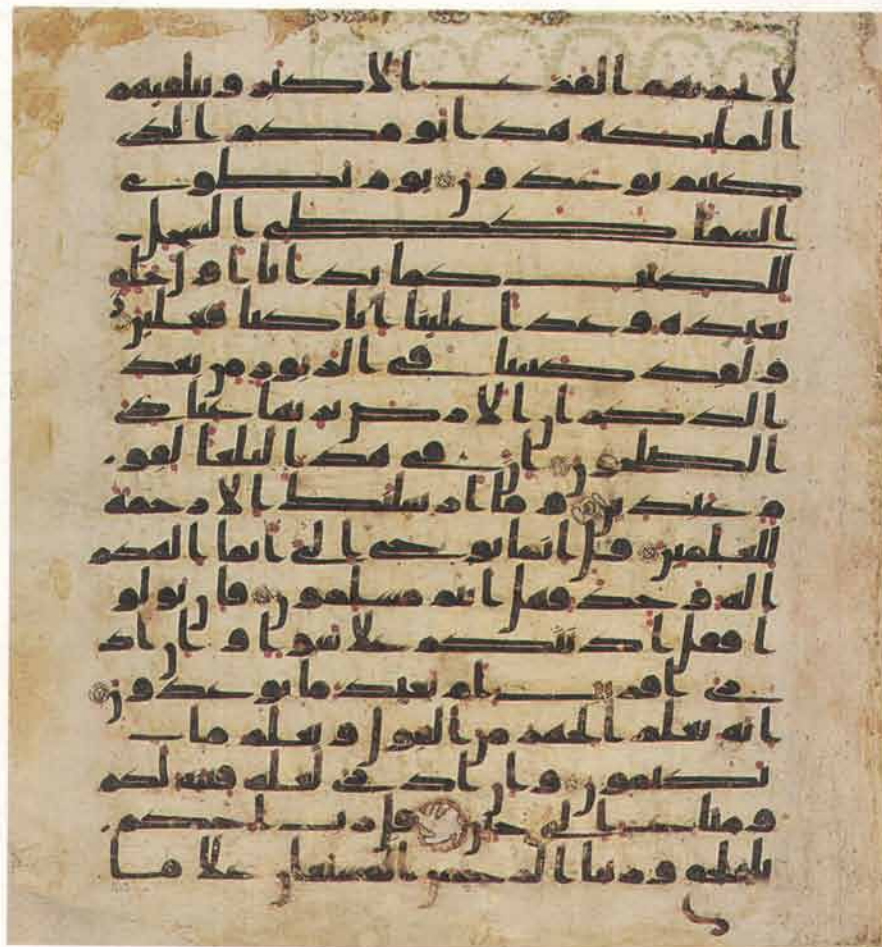 لا يحزنهم الفزع الاكبر وتتلقيهم
الملئكه هذا يومكم الذى
كنتم توعدون يوم نطوى
السما كطى السجل
للكتب كما بدانا اول خلق
نعيده وعدا علينا انا كنا فعلين
ولقد كتبنا فى الزبور من بعد
الذكر ان الارض يرثها عبادى
الصلحون ان فى هذا لبلغا لقو
م عبدين وما ارسلنك الا رحمة
للعلمين قل انما يوحى الى انما الهكم
اله وحد فهل انتم مسلمون فان تولو
ا فقل اذنتكم علا سوا وان اد
رى اقريب ام بعيد ما توعدون
انه يعلم الجهر من القول ويعلم ما
تكتمون وان ادرى لعله فتنه لكم
ومتع الى حين قل رب احكم
بالحق وربنا الرحمن المستعان علا ما